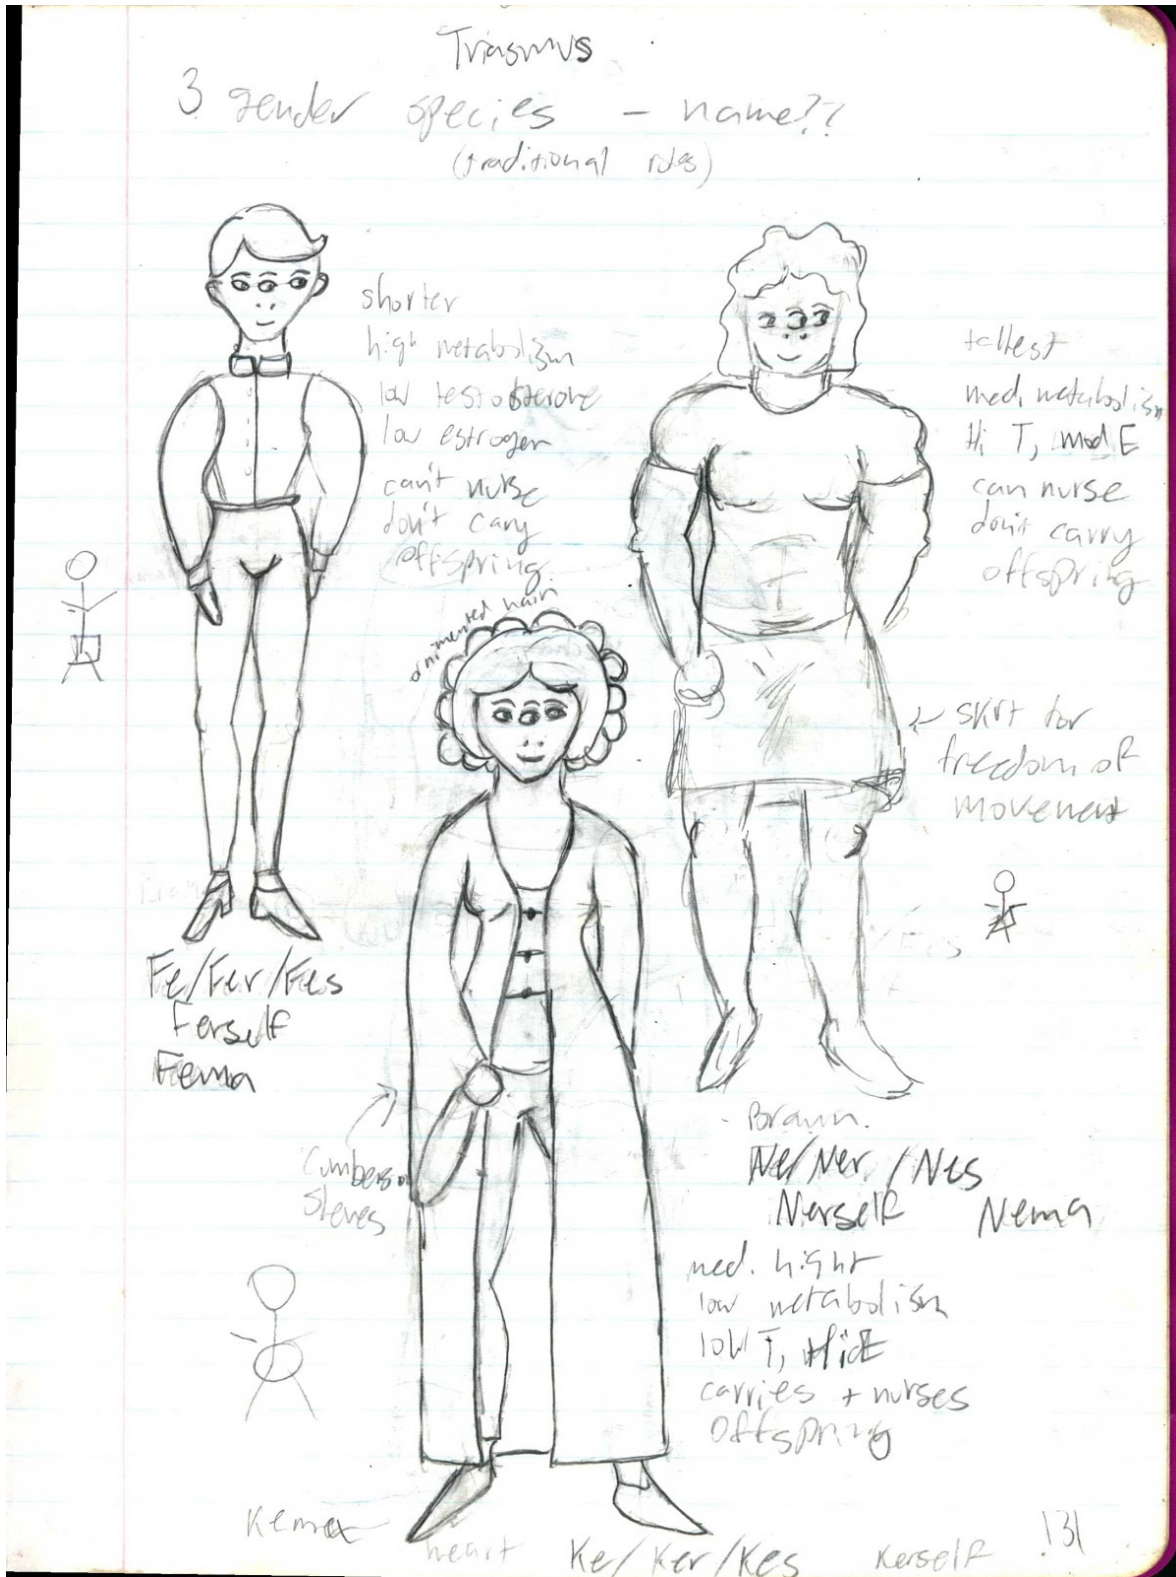 Triasmus
3 gender species - name??
(traditional roles)
shorter
high metabolism
low testosterone
low estrogen
can't nurse
don't cary
offspring.
tallest
med. metabolism
Hi T, mod E
can nurse
don't carry
offspring
← skirt for
freedom of
movement
ornimented hair
Fe/Fer/Fes
Ferself
Fema
Cumberson
Sleves
- Brawn.
Ne/Ner/Nes
Nerself Nema
med. hight
low metabolism
low T, Hi E
carries + nurses
offspring
Kema
heart
Ke/Ker/Kes Kerself
131